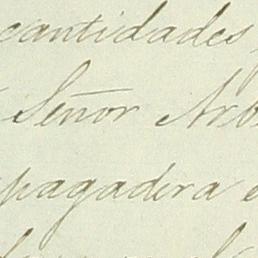 cantidades
Señor
pagadera